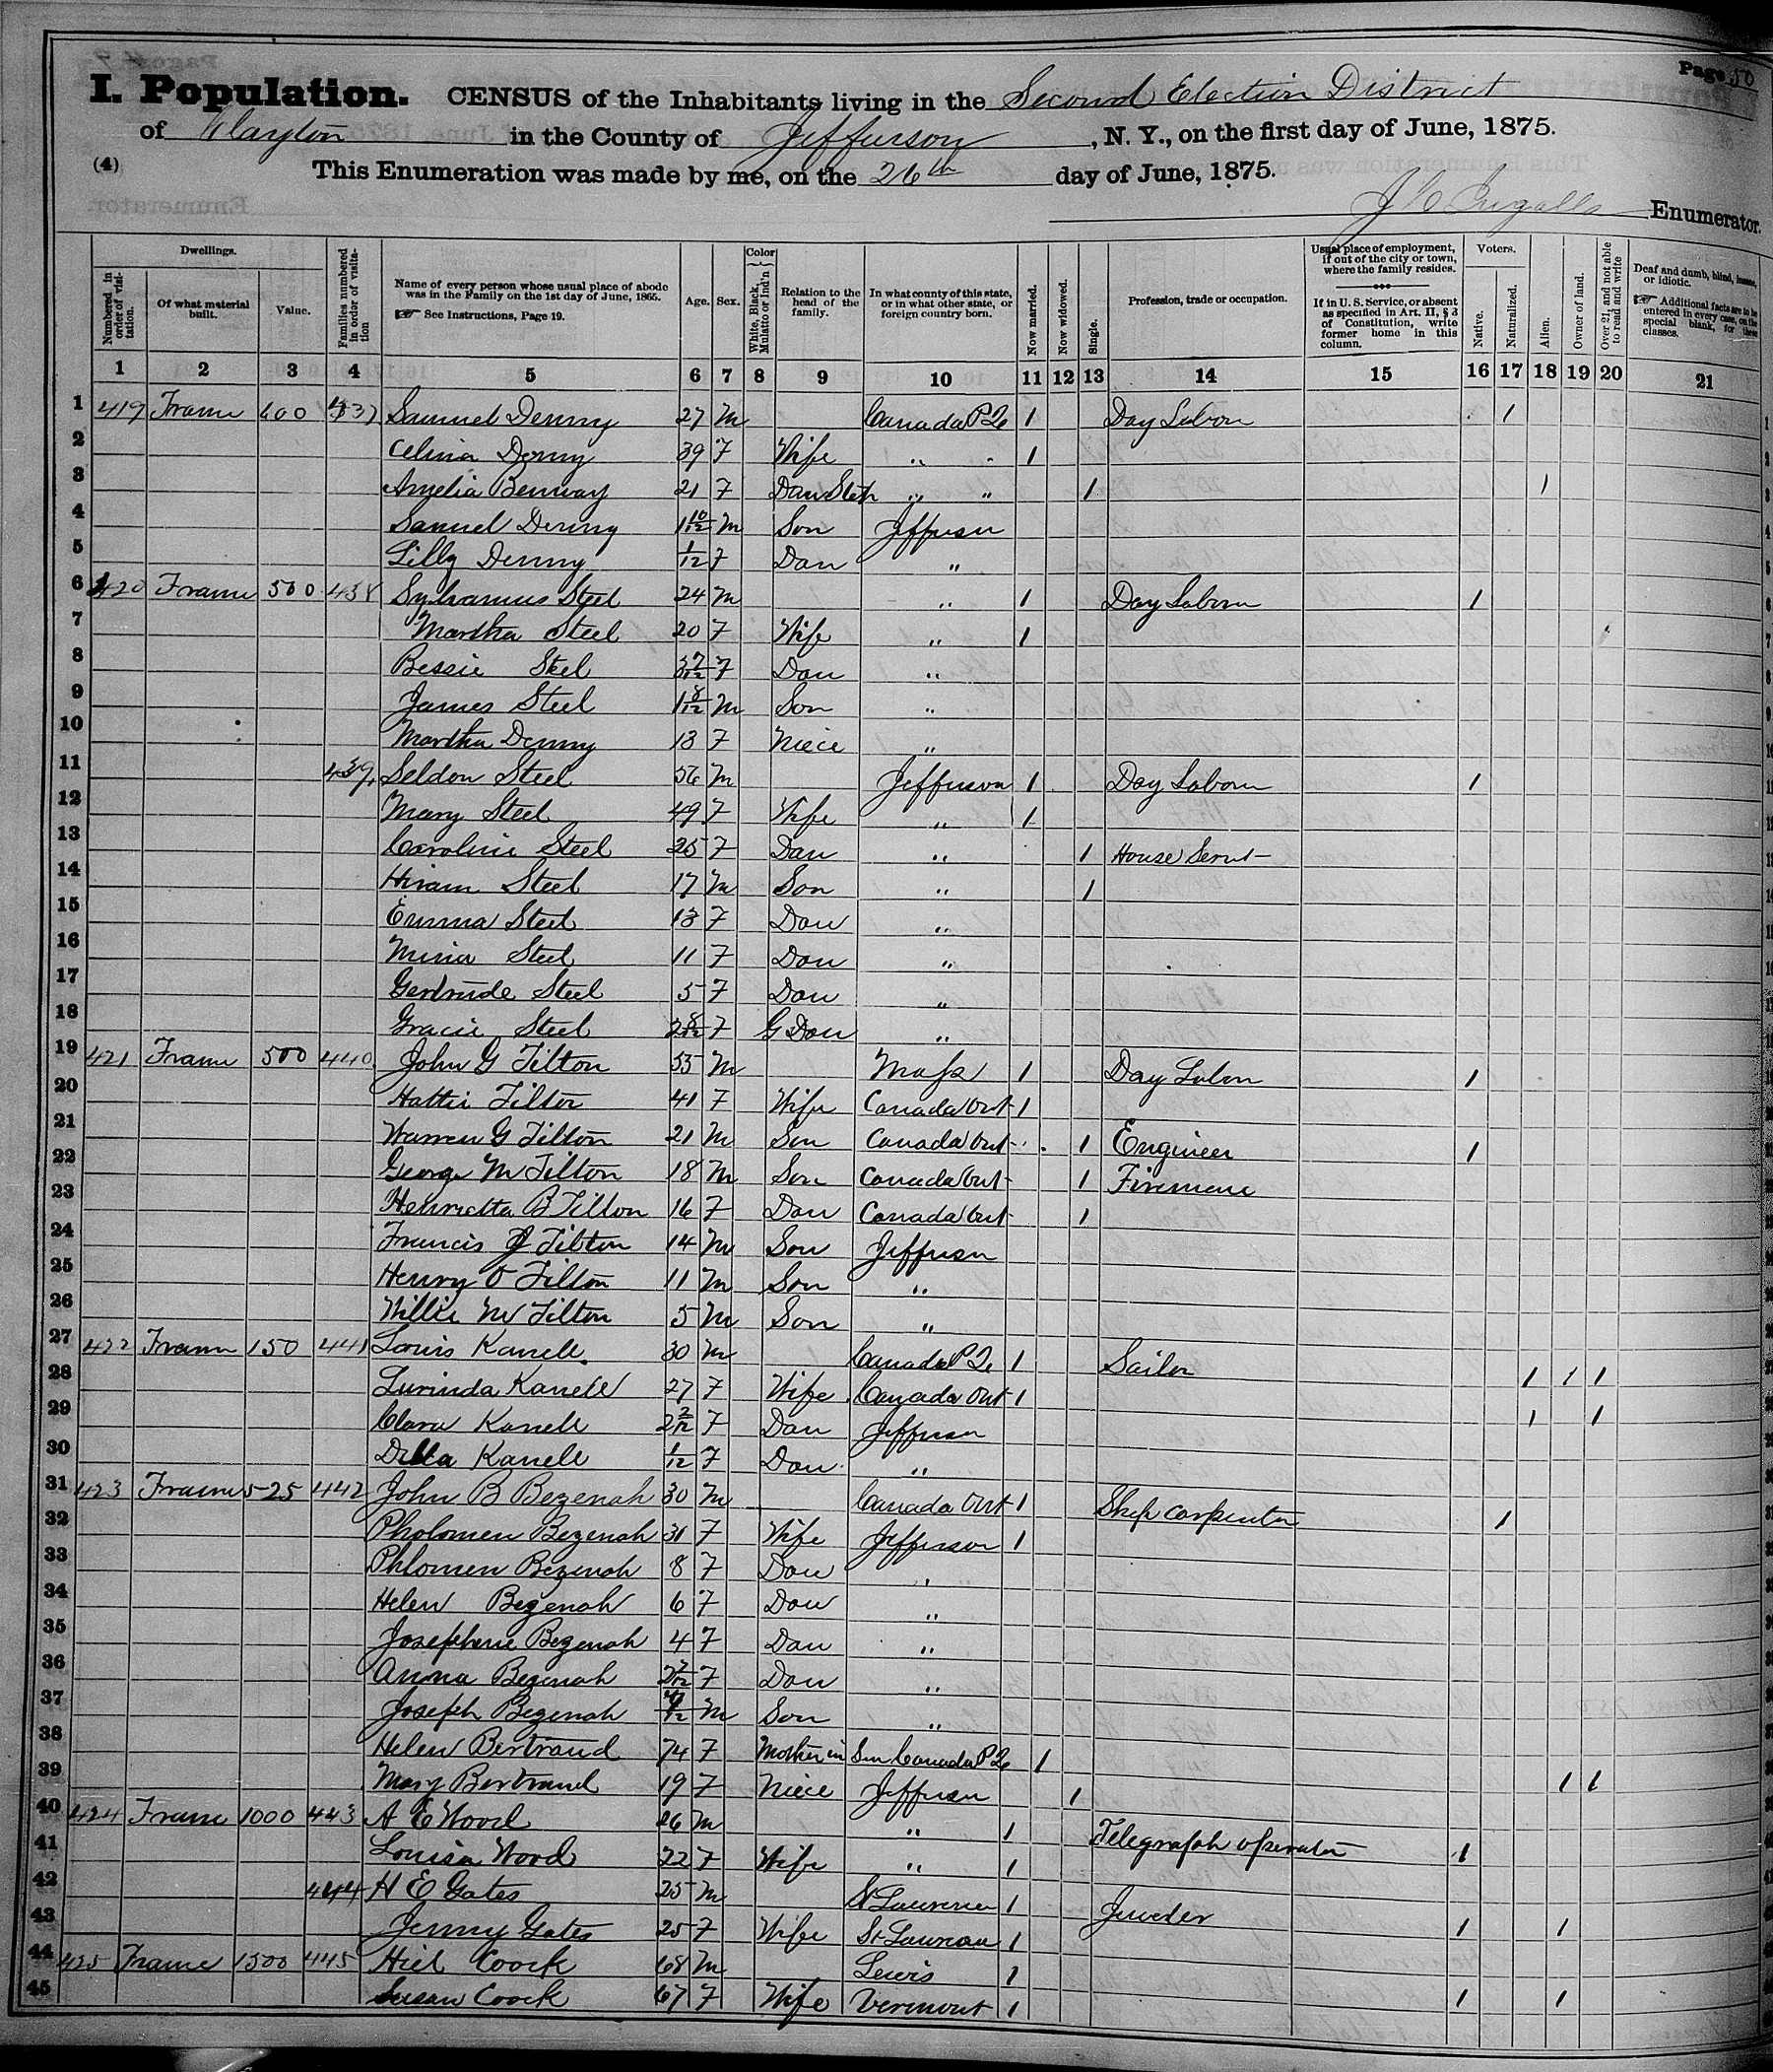 Page 50
I. Population. CENSUS of the Inhabitants living in the Second Election District
of Clayton in the County of Jefferson, N. Y., on the first day of June, 1875.
(4) This Enumeration was made by me, on the 26th day of June, 1875.
J C Ingalls Enumerator.
Dwellings.
Numbered in order of visitation.
Of what material built.
Value.
Families numbered in order of visitation
Name of every person whose usual place of abode was in the Family on the 1st day of June, 1865.
☞ See Instructions, Page 19.
Age.
Sex.
Color
White, Black, Mulatto or Ind'n
Relation to the head of the family.
In what county of this state, or in what other state, or foreign country born.
Now married.
Now widowed.
Single.
Profession, trade or occupation.
Usual place of employment, if out of the city or town, where the family resides.
If in U. S. Service, or absent as specified in Art. II, § 3 of Constitution, write former home in this column.
Voters.
Native.
Naturalized.
Alien.
Owner of land.
Over 21, and not able to read and write
Deaf and dumb, blind, insane, or idiotic.
☞ Additional facts are to be entered in every case, on the special blank, for these classes.
1 2 3 4 5 6 7 8 9 10 11 12 13 14 15 16 17 18 19 20 21
1 419 Frame 600 437 Samuel Denny 27 M Canada P Q 1 Day Labor 1
2 Celina Denny 39 F Wife " " 1
3 Angelia Benway 21 F Dau Step " " 1 1
4 Samuel Denny 1 10/12 M Son Jefferson
5 Lilly Denny 1/12 F Dau "
6 420 Frame 500 438 Sylvanus Steel 24 M " 1 Day Labor 1
7 Martha Steel 20 F Wife " 1
8 Bessie Steel 3 7/12 F Dau "
9 James Steel 1 8/12 M Son "
10 Martha Denny 13 F Niece "
11 439 Seldon Steel 56 M Jefferson 1 Day Labor 1
12 Mary Steel 49 F Wife " 1
13 Caroline Steel 25 F Dau " 1 House Servt
14 Hiram Steel 17 M Son " 1
15 Emma Steel 13 F Dau "
16 Mina Steel 11 F Dau "
17 Gertrude Steel 5 F Dau "
18 Gracie Steel 2 8/12 F G Dau "
19 421 Frame 500 440 John G Tilton 55 M Mass 1 Day Labor 1
20 Hattie Tilton 41 F Wife Canada Ont 1
21 Warren G Tilton 21 M Son Canada Ont 1 Engineer 1
22 George M Tilton 18 M Son Canada Ont 1 Fireman
23 Henrietta B Tilton 16 F Dau Canada Ont 1
24 Francis J Tilton 14 M Son Jefferson
25 Henry O Tilton 11 M Son "
26 Willie M Tilton 5 M Son "
27 422 Frame 150 441 Louis Kanell 30 M Canada P Q 1 Sailor 1 1 1
28 Lurinda Kanell 27 F Wife Canada Ont 1
29 Clara Kanell 2 2/12 F Dau Jefferson 1 1
30 Della Kanell 1/12 F Dau "
31 423 Frame 525 442 John B Bezenah 30 M Canada Ont 1 Ship carpenter
32 Pholomen Bezenah 31 F Wife Jefferson 1 1
33 Phlomen Bezenah 8 F Dau "
34 Helen Bezenah 6 F Dau "
35 Josephine Bezenah 4 F Dau "
36 Anna Bezenah 2 7/12 F Dau "
37 Joseph Bezenah M Son "
38 Helen Bertrand 74 F Mother in Law Canada P Q 1
39 Mary Bertrand 19 F Niece Jefferson 1 1 1
40 424 Frame 1000 443 A E Wood 26 M " 1 Telegraph operator
41 Louisa Wood 22 F Wife " 1 1
42 444 H E Gates 25 M St Lawrence 1 Jeweler
43 Jenny Gates 25 F Wife St Lawrence 1 1 1
44 425 Frame 1500 445 Hiel Coock 68 M Lewis 1
45 Susan Coock 67 F Wife Vermont 1 1 1